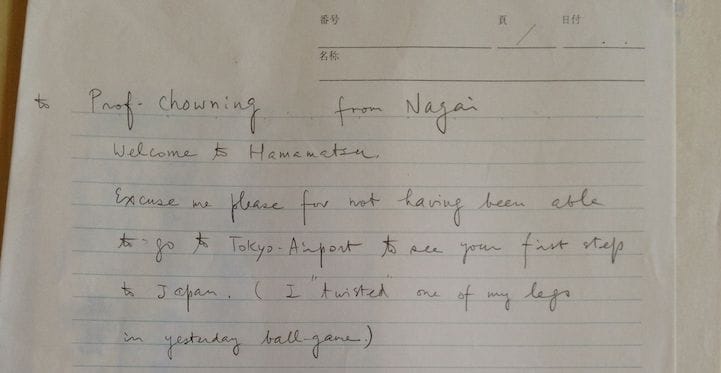 番号 頁 日付
/ . .
名称
to Prof. Chowning from Nagai
Welcome to Hamamatsu.
Excuse me please for not having been able
to go to Tokyo-Airport to see your first step
to Japan. ( I "twisted" one of my legs
in yesterday ball-game.)